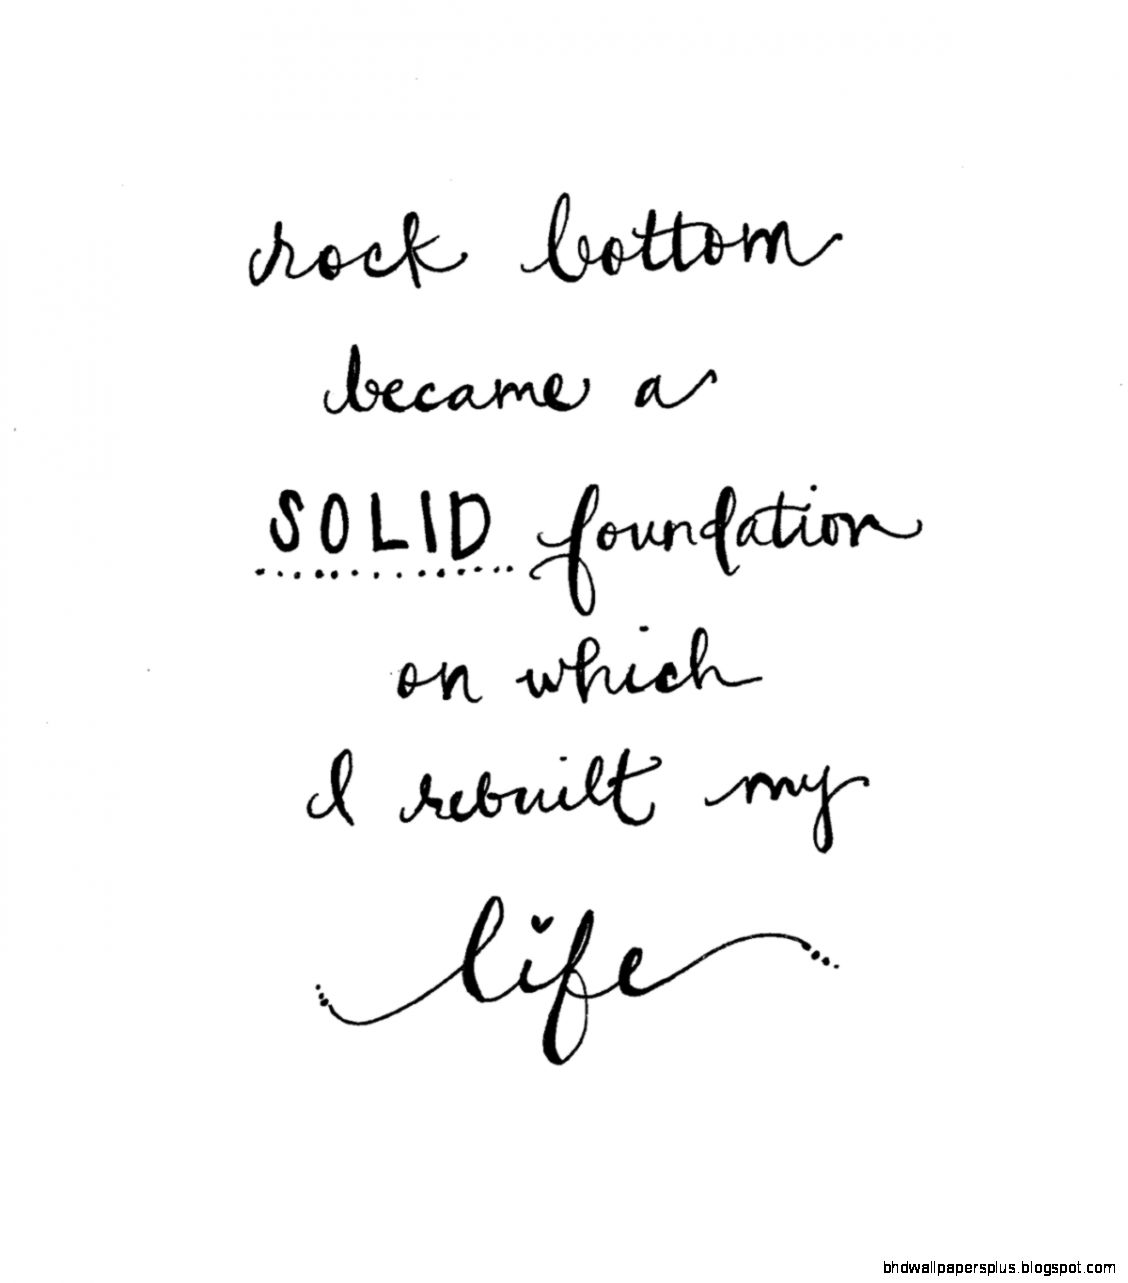 rock bottom
became a
SOLID foundation
on which
I rebuilt my
life
bhdwallpapersplus.blogspot.com